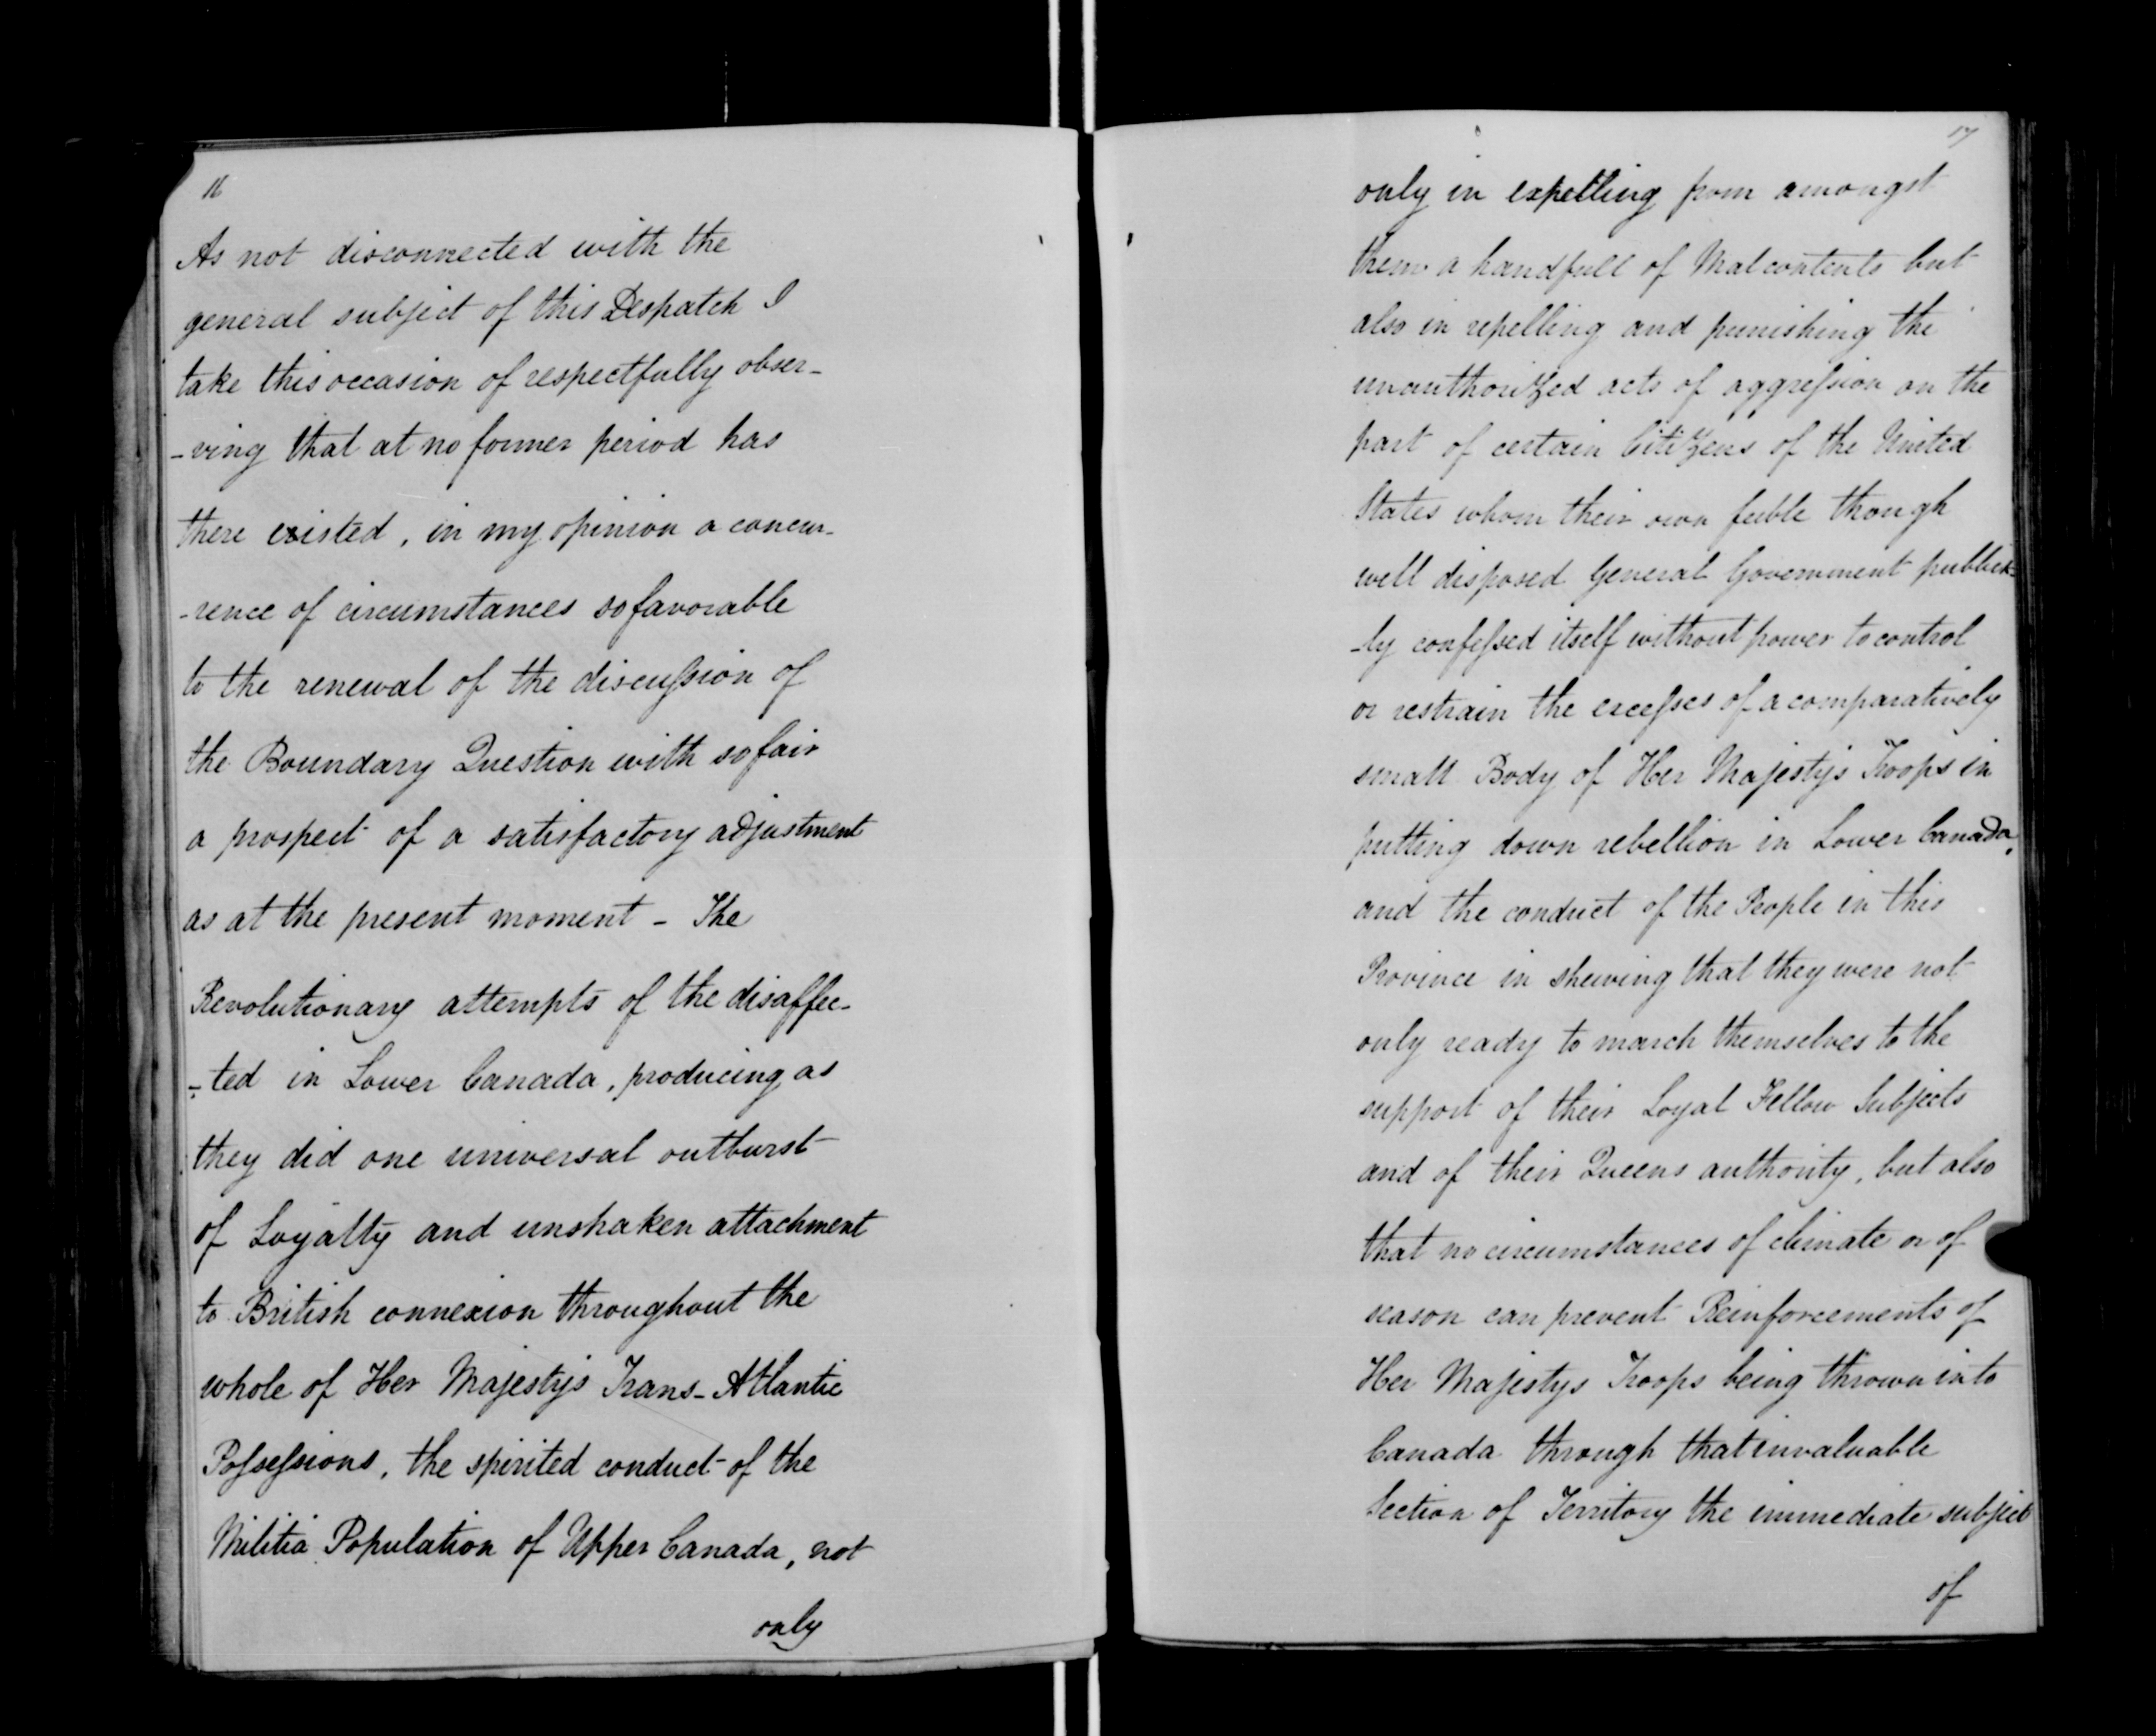 16
As not disconnected with the
general subject of this Despatch I
take this occasion of respectfully obser-
-ving that at no former period has
there existed, in my opinion a concur-
-rence of circumstances so favorable
to the renewal of the discuſsion of
the Boundary Question with so fair
a prospect of a satisfactory adjustment
as at the present moment - The
Revolutionary attempts of the disaffec-
-ted in Lower Canada, producing as
they did one universal outburst
of Loyalty and unshaken attachment
to British connexion throughout the
whole of Her Majestys Trans-Atlantic
Poſseſsions, the spirited conduct of the
Militia Population of Upper Canada, not
only
17
only in expelling from amongst
them a handfull of Malcontents but
also in repelling and punishing the
unauthorized acts of aggreſsion on the
part of certain Citizens of the United
States whom their own feeble though
well disposed General Government publick-
-ly confeſsed itself without power to control
or restrain the exceſses of a comparatively
small Body of Her Majestys Troops in
putting down rebellion in Lower Canada,
and the conduct of the People in this
Province in shewing that they were not
only ready to march themselves to the
support of their Loyal Fellow Subjects
and of their Queens authority, but also
that no circumstances of climate or of
season can prevent Reinforcements of
Her Majestys Troops being thrown into
Canada through that invaluable
Section of Territory the immediate subject
of